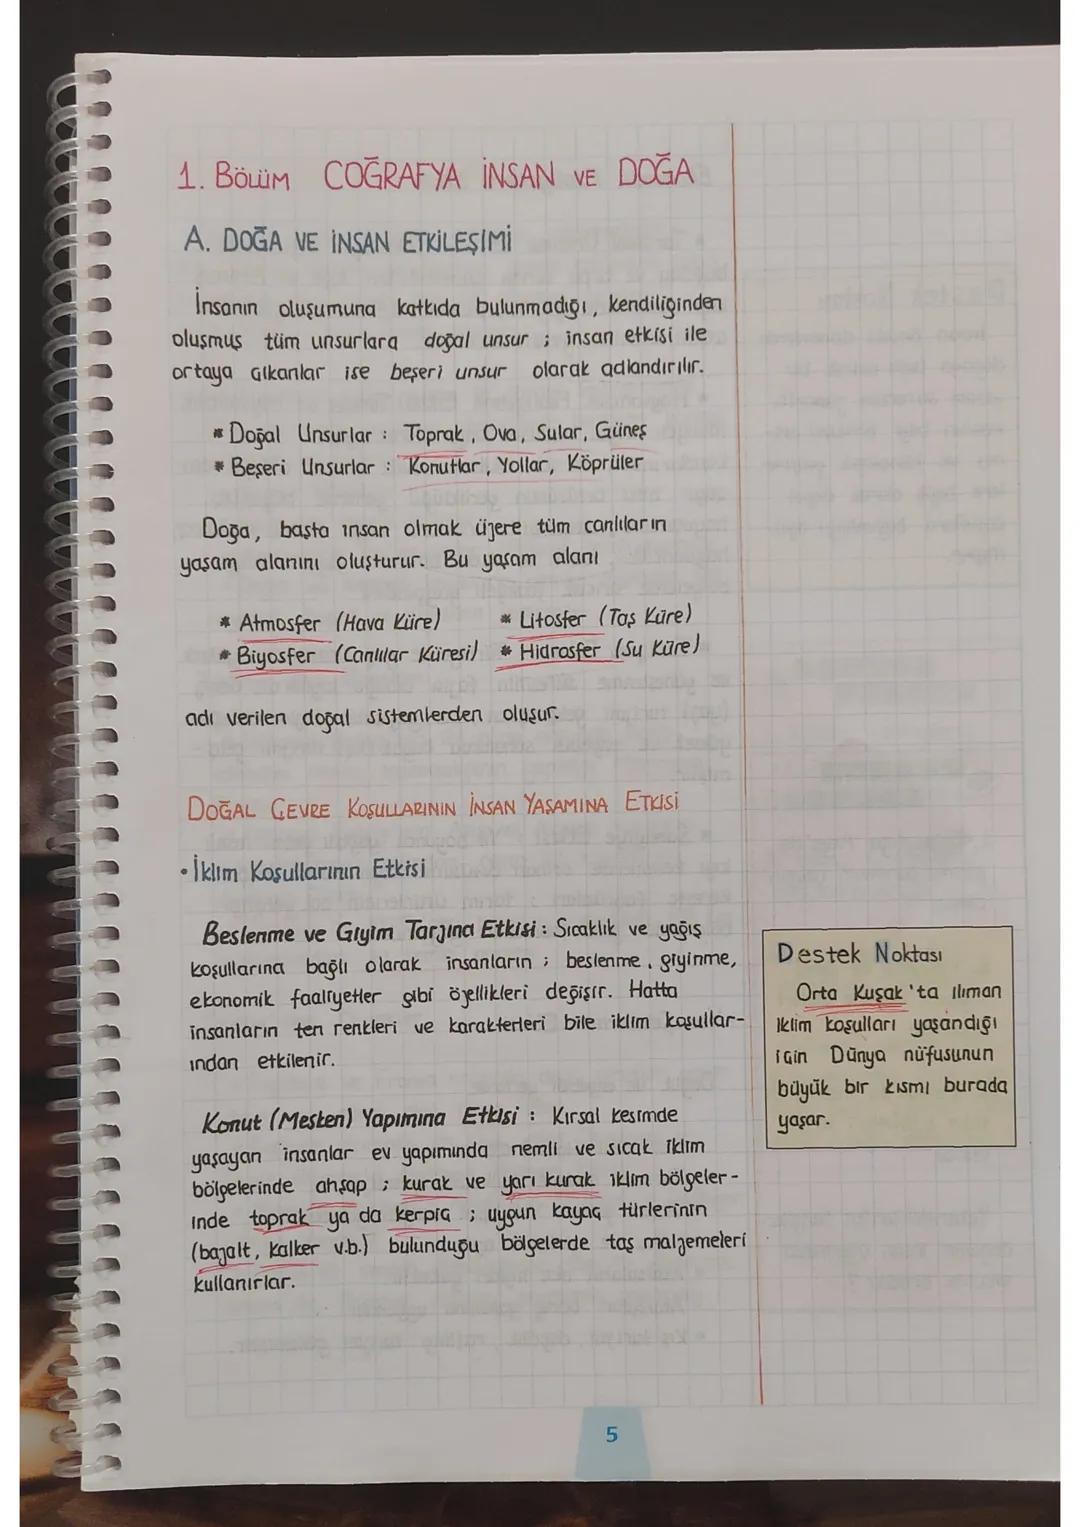 1. Bölüm COĞRAFYA İNSAN VE DOĞA
A. DOĞA VE İNSAN ETKİLEŞİMİ
İnsanın oluşumuna katkıda bulunmadığı, kendiliğinden
oluşmuş tüm unsurlara doğal unsur ; insan etkisi ile
ortaya çıkanlar ise beşeri unsur olarak adlandırılır.
* Doğal Unsurlar : Toprak, Ova, Sular, Güneş
* Beşeri Unsurlar : Konutlar, Yollar, Köprüler
Doğa, başta insan olmak üzere tüm canlıların
yaşam alanını oluşturur. Bu yaşam alanı
* Atmosfer (Hava Küre) * Litosfer (Taş Küre)
* Biyosfer (Canlılar Küresi) * Hidrosfer (Su Küre)
adı verilen doğal sistemlerden oluşur.
DOĞAL ÇEVRE KOŞULLARININ İNSAN YAŞAMINA ETKİSİ
• İklim Koşullarının Etkisi
Beslenme ve Giyim Tarzına Etkisi : Sıcaklık ve yağış
koşullarına bağlı olarak insanların ; beslenme, giyinme,
ekonomik faaliyetler gibi özellikleri değişir. Hatta
insanların ten renkleri ve karakterleri bile iklim koşullar-
ından etkilenir.
Konut (Mesken) Yapımına Etkisi : Kırsal kesimde
yaşayan insanlar ev yapımında nemli ve sıcak iklim
bölgelerinde ahşap ; kurak ve yarı kurak iklim bölgeler-
inde toprak ya da kerpiç ; uygun kayaç türlerinin
(bazalt, kalker v.b.) bulunduğu bölgelerde taş malzemeleri
kullanırlar.
Destek Noktası
Orta Kuşak'ta ılıman
iklim koşulları yaşandığı
için Dünya nüfusunun
büyük bir kısmı burada
yaşar.
5